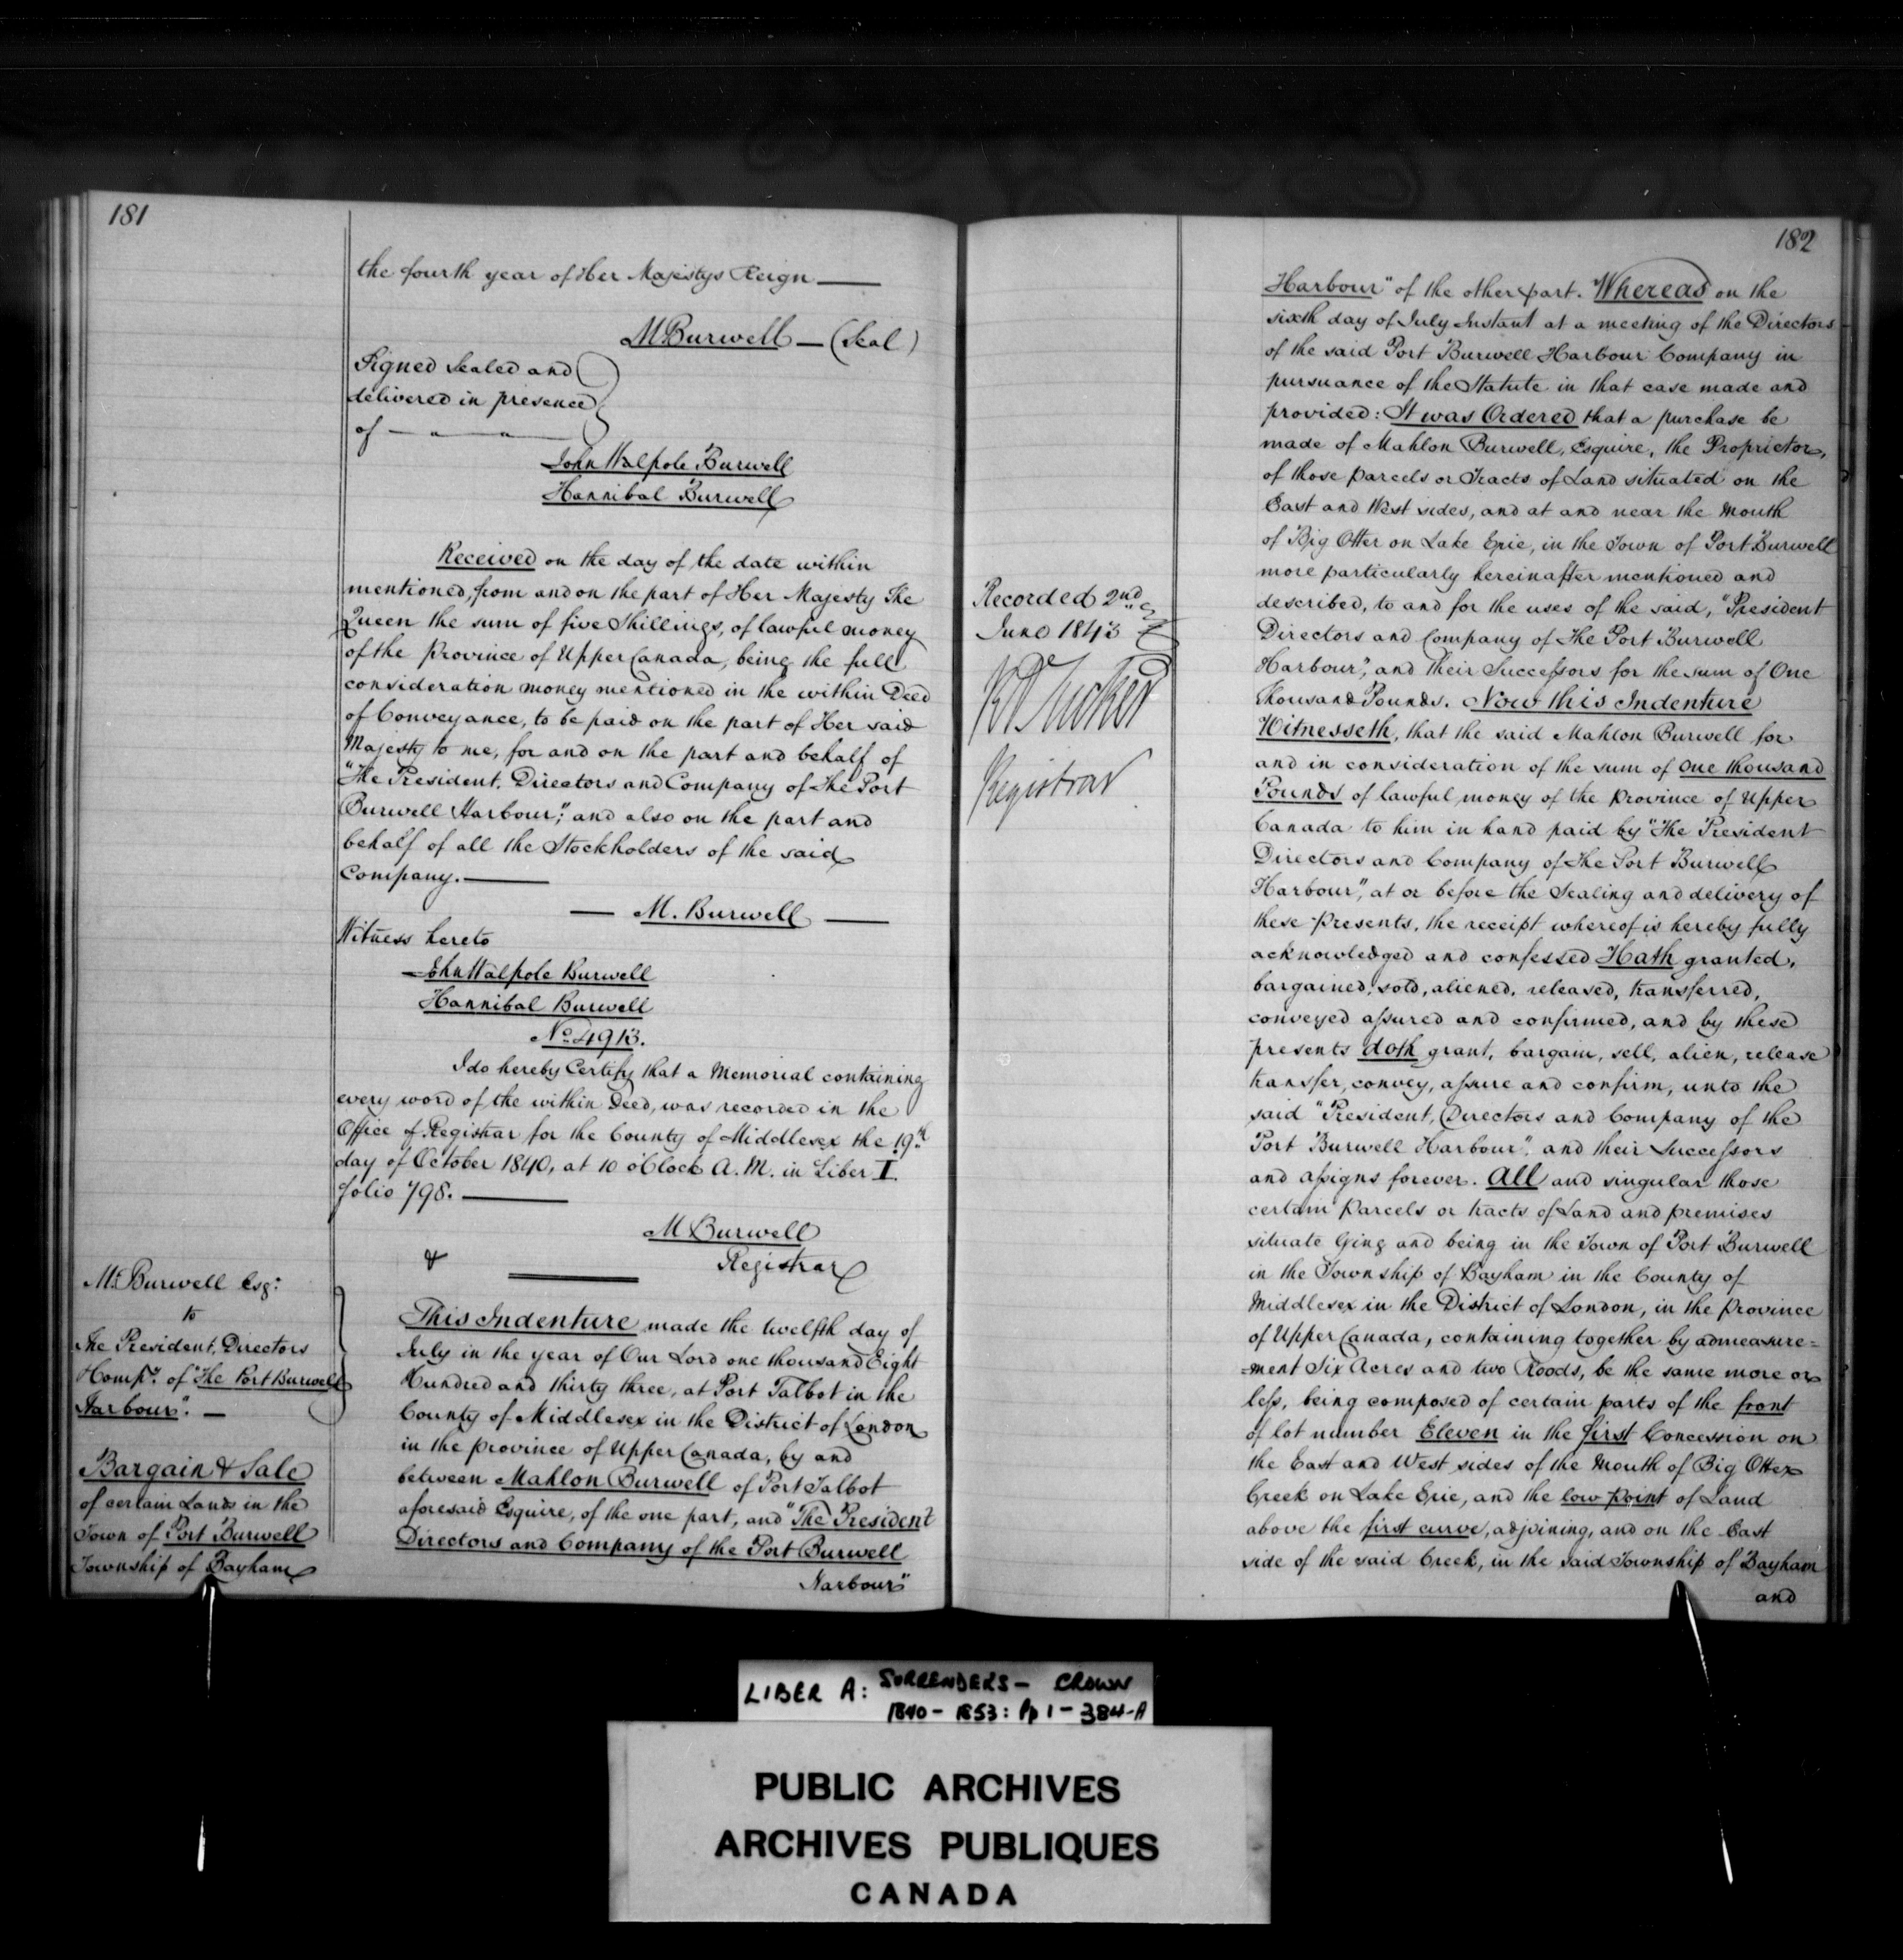 181
the fourth year of Her Majestys Reign —
M Burwell — (Seal)
Signed Sealed and
delivered in presence
of — " — " —
John Walpole Burwell
Hannibal Burwell
Received on the day of the date within
mentioned, from and on the part of Her Majesty The
Queen the sum of five Shillings, of lawful money
of the Province of Upper Canada, being the full
consideration money mentioned in the within Deed
of Conveyance, to be paid on the part of Her said
Majesty to me, for and on the part and behalf of
"The President, Directors and Company of The Port
Burwell Harbour", and also on the part and
behalf of all the Stockholders of the said
Company. —
— M. Burwell —
Witness hereto
John Walpole Burwell
Hannibal Burwell
No. 4913.
I do hereby Certify that a Memorial containing
every word of the within Deed, was recorded in the
Office of Registrar for the County of Middlesex the 19th
day of October 1840, at 10 o'Clock A.M. in Liber I.
folio 798. —
M Burwell
Registrar
M. Burwell Esqr.
to
The President, Directors
& Compy. of "The Port Burwell
Harbour". —
Bargain & Sale
of certain Lands in the
Town of Port Burwell
Township of Bayham
This Indenture made the twelfth day of
July in the year of Our Lord one thousand Eight
Hundred and thirty three, at Port Talbot in the
County of Middlesex in the District of London
in the province of Upper Canada, by and
between Mahlon Burwell of Port Talbot
aforesaid Esquire, of the one part, and "The President
Directors and Company of the Port Burwell
Harbour"
182
Recorded 2nd
June 1843
R A Tucker
Registrar
Harbour" of the other part. Whereas on the
sixth day of July Instant at a meeting of the Directors
of the said Port Burwell Harbour Company in
pursuance of the Statute in that case made and
provided: It was Ordered that a purchase be
made of Mahlon Burwell, Esquire, the Proprietor,
of those parcels or Tracts of Land situated on the
East and West sides, and at and near the Mouth
of Big Otter on Lake Erie, in the Town of Port Burwell
more particularly hereinafter mentioned and
described, to and for the uses of the said, "President
Directors and Company of The Port Burwell
Harbour", and their Successors for the sum of One
thousand Pounds. Now this Indenture
Witnesseth, that the said Mahlon Burwell for
and in consideration of the sum of one thousand
Pounds of lawful money of the Province of Upper
Canada to him in hand paid by "The President
Directors and Company of The Port Burwell
Harbour", at or before the Sealing and delivery of
these Presents, the receipt whereof is hereby fully
acknowledged and confessed Hath granted,
bargained, sold, aliened, released, transferred,
conveyed assured and confirmed, and by these
presents doth grant, bargain, sell, alien, release
transfer, convey, assure and confirm, unto the
said "President, Directors and Company of the
Port Burwell Harbour". and their Successors
and assigns forever. All and singular those
certain Parcels or tracts of Land and premises
situate lying and being in the Town of Port Burwell
in the Township of Bayham in the County of
Middlesex in the District of London, in the Province
of Upper Canada, containing together by admeasure=
=ment Six Acres and two Roods, be the same more or
less, being composed of certain parts of the front
of lot number Eleven in the first Concession on
the East and West sides of the Mouth of Big Otter
Creek on Lake Erie, and the low point of Land
above the first curve, adjoining, and on the East
side of the said Creek, in the said Township of Bayham
and
LIBER A: SURRENDERS - CROWN
1840 - 1853: Pp 1 - 384-A
PUBLIC ARCHIVES
ARCHIVES PUBLIQUES
CANADA